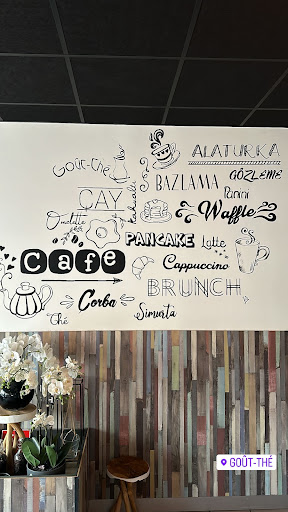 Goût-thé
ALATURKA
GÖZLEME
BAZLAMA
Panini
ÇAY
Omelette
Waffle
PANCAKE
Latte
Cafe
Cappuccino
BRUNCH
Çorba
Simurta
Thé
GOÛT-THÉ